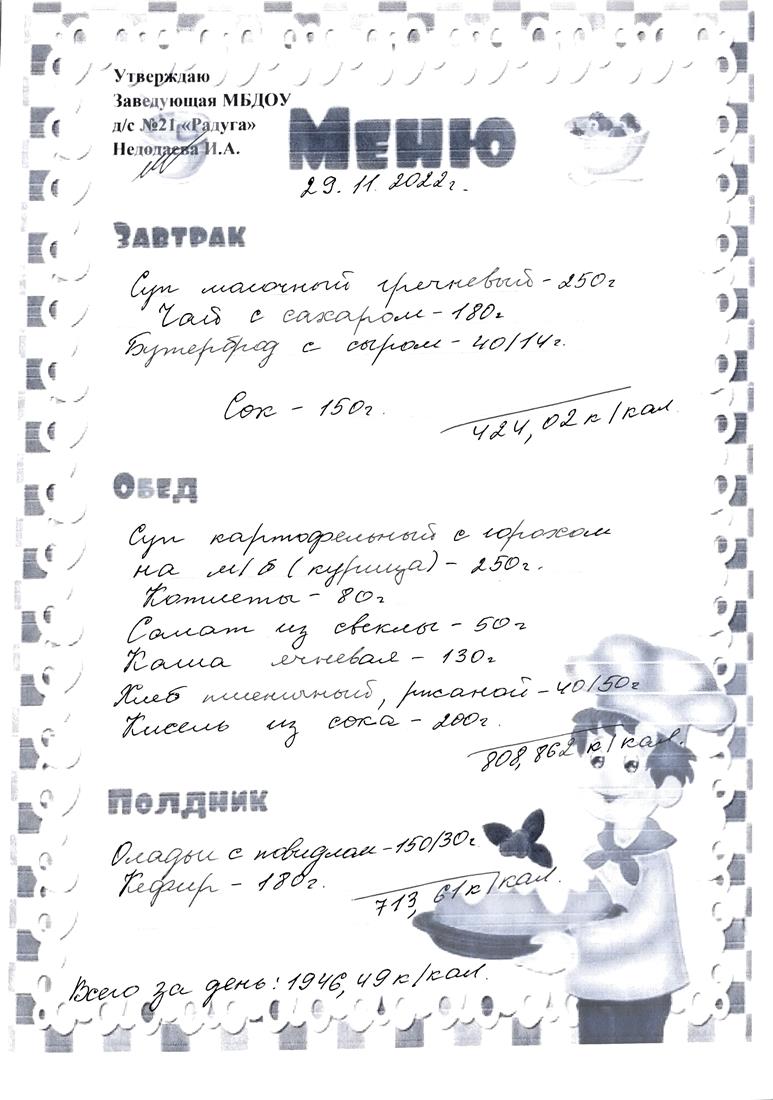 Утверждаю
Заведующая МБДОУ
д/с №21 «Радуга»
Недодаева И.А.
Меню
29.11.2022г.
Завтрак
Суп молочный гречневый - 250г
Чай с сахаром - 180г
Бутерброд с сыром - 40/14г.
Сок - 150г.
424,02 к/кал
Обед
Суп картофельный с горохом
на м/б (курица) - 250г.
Котлеты - 80г
Салат из свеклы - 50г
Каша ячневая - 130г
Хлеб пшеничный, ржаной - 40/50г
Кисель из сока - 200г.
808,862 к/кал.
Полдник
Оладьи с повидлом - 150/30г
Кефир - 180г.
713,61 к/кал.
Всего за день: 1946,49 к/кал.